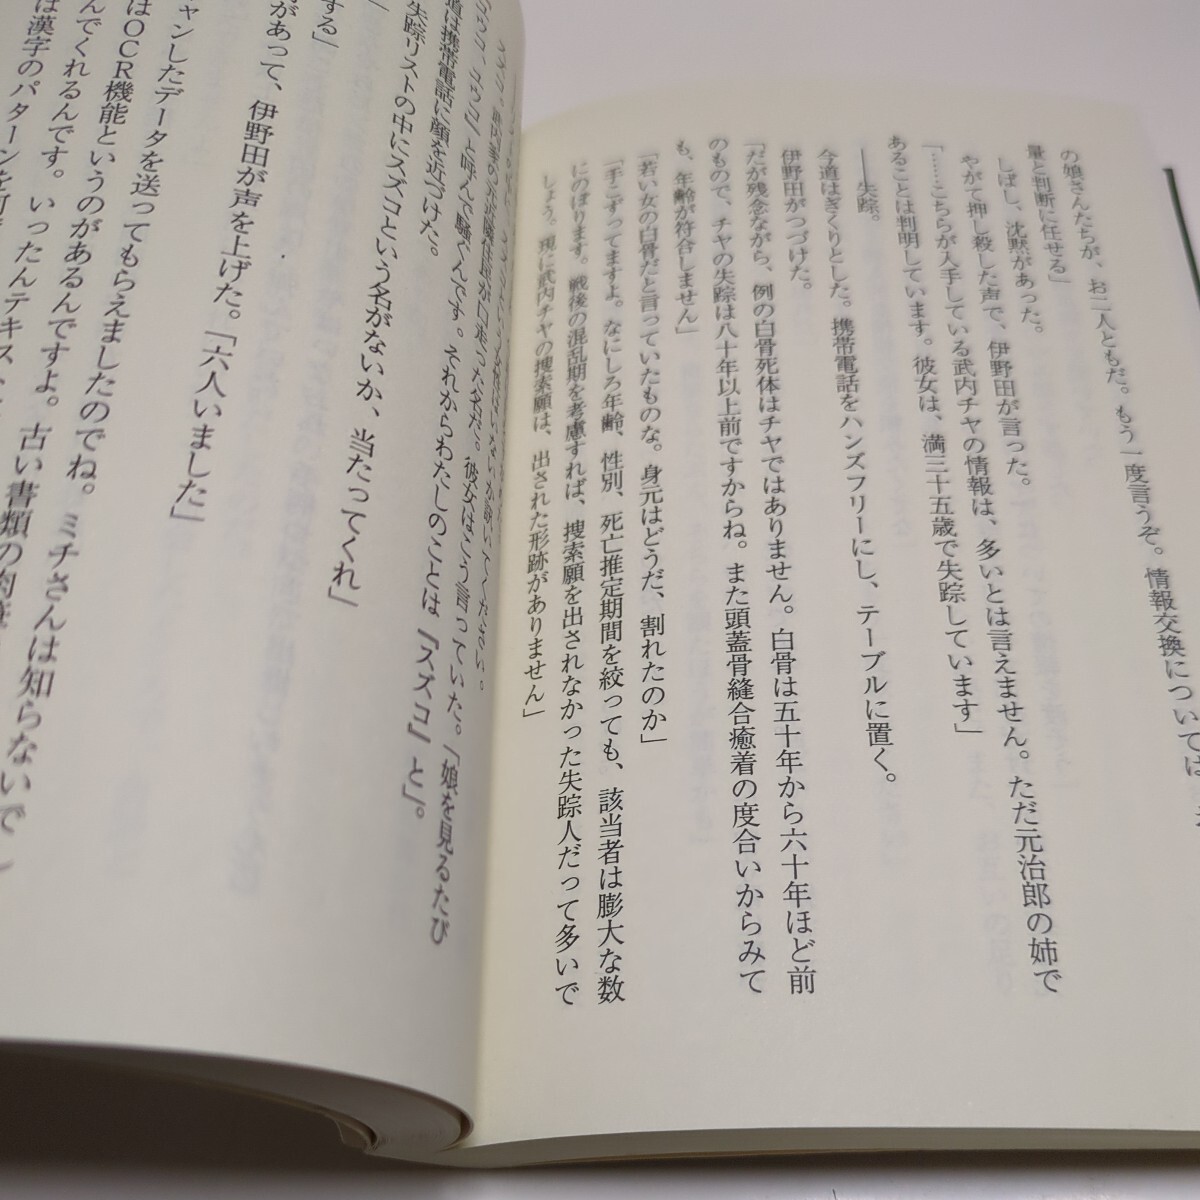 の娘さんたちが、お二人ともだ。もう一度言うぞ。情報交換については
量と判断に任せる」
しばし、沈黙があった。
やがて押し殺した声で、伊野田が言った。
「……こちらが入手している武内チヤの情報は、多いとは言えません。ただ元治郎の姉で
あることは判明しています。彼女は、満三十五歳で失踪しています」
――失踪。
今道はぎくりとした。携帯電話をハンズフリーにし、テーブルに置く。
伊野田がつづけた。
「だが残念ながら、例の白骨死体はチヤではありません。白骨は五十年から六十年ほど前
のもので、チヤの失踪は八十年以上前ですからね。また頭蓋骨縫合癒着の度合いからみて
も、年齢が符合しません」
「若い女の白骨だと言っていたものな。身元はどうだ、割れたのか」
「手こずってますよ。なにしろ年齢、性別、死亡推定期間を絞っても、該当者は膨大な数
にのぼります。戦後の混乱期を考慮すれば、捜索願を出されなかった失踪人だって多いで
しょう。現に武内チヤの捜索願は、出された形跡がありません」
が口走った名だ。彼女はこう言っていた。「娘を見るたび
と呼んで騒ぐんです。それからわたしのことは『スズコ』と」。
道は携帯電話に顔を近づけた。
失踪リストの中にスズコという名がないか、当たってくれ」
する」
があって、伊野田が声を上げた。「六人いました」
ャンしたデータを送ってもらえましたのでね。ミチさんは知らないでし
はOCR機能というのがあるんですよ。古い書類の
んでくれるんです。いったんテキスト
は漢字のパターンを